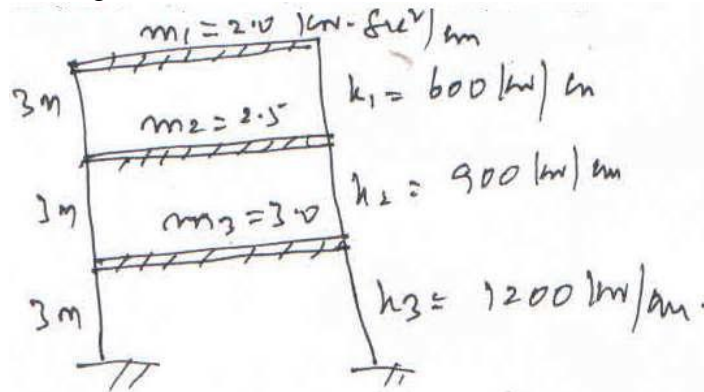 m₁ = 2.0 kN-sec²/cm
3m
k₁ = 600 kN/cm
m₂ = 2.5
3m
k₂ = 900 kN/cm
m₃ = 3.0
3m
k₃ = 1200 kN/cm.